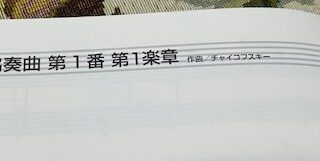 奏曲 第1番 第1楽章 作曲/チャイコフスキー